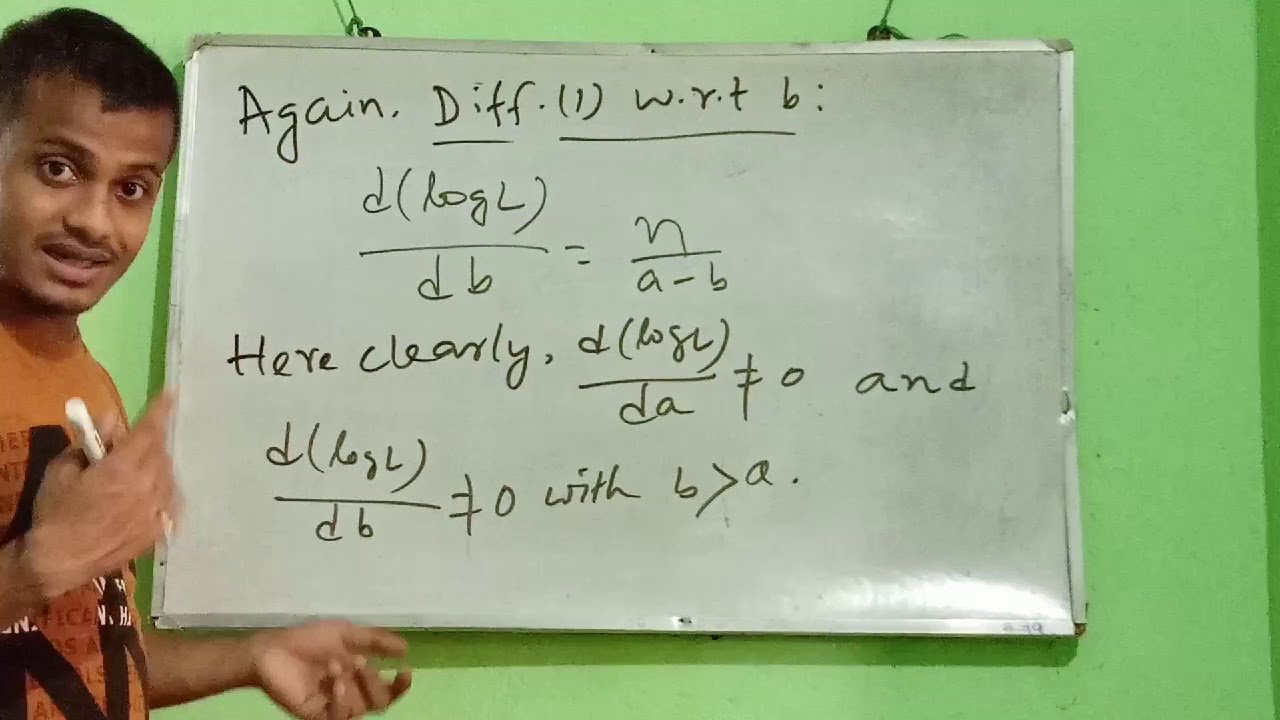 Again. Diff. (1) w.r.t b :
d(log L) / db = n / a - b
Here clearly, d(log L) / da ≠ 0 and
d(log L) / db ≠ 0 with b > a.